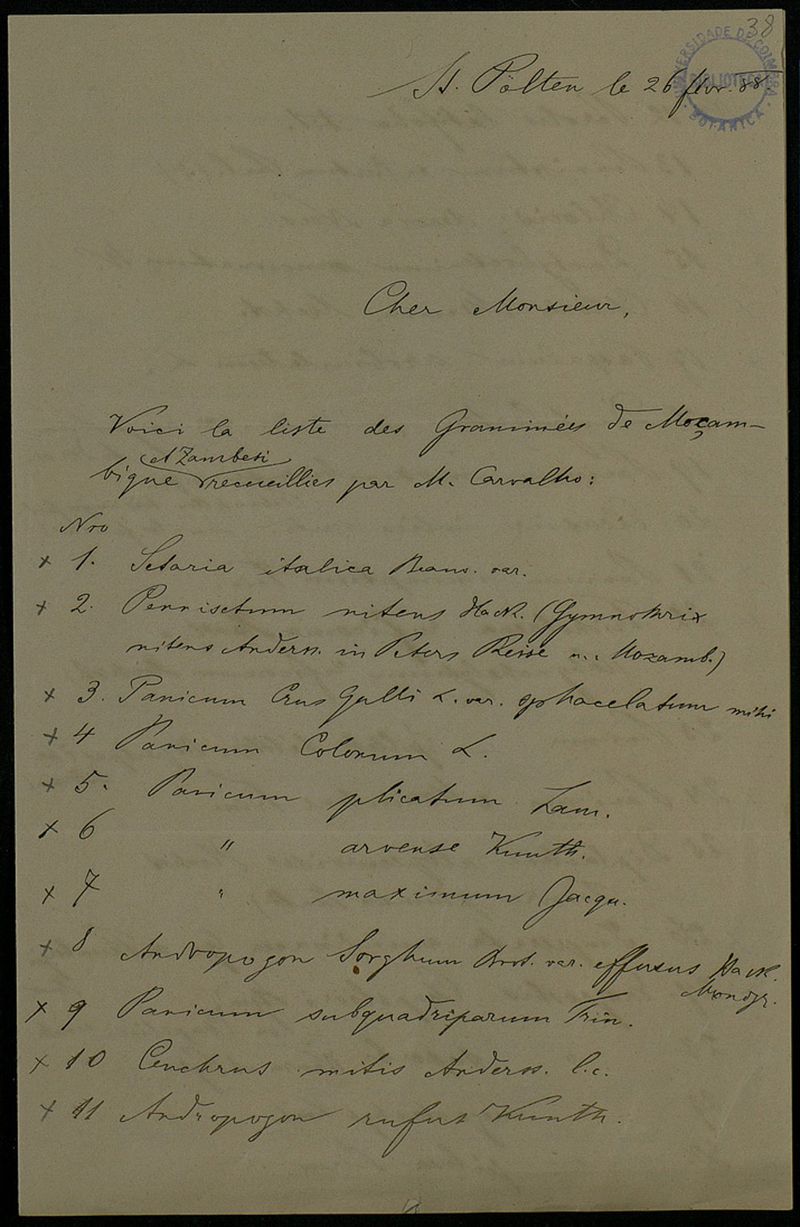 38
UNIVERSIDADE DE COIMBRA
BIBLIOTECA
BOTANICA
St. Pölten le 26 fevr. 88.
Cher Monsieur,
Voici la liste des Graminées de Moçam-
et Zambesi
bique recueillies par M. Carvalho:
Nro
x 1. Setaria italica Beauv. var.
x 2. Pennisetum nitens Hack. (Gymnothrix
nitens Anderss. in Peters Reise n. Mozamb.)
x 3. Panicum Crus Galli L. var. sphacelatum mihi
x 4 Panicum Colonum L.
x 5. Panicum plicatum Lam.
x 6 " arvense Kunth.
x 7 " maximum Jacqu.
x 8 Andropogon Sorghum Brot. var. effusus Hack.
Monogr.
x 9 Panicum subquadriparum Trin.
x 10 Cenchrus mitis Anderss. l.c.
x 11 Andropogon rufus Kunth.